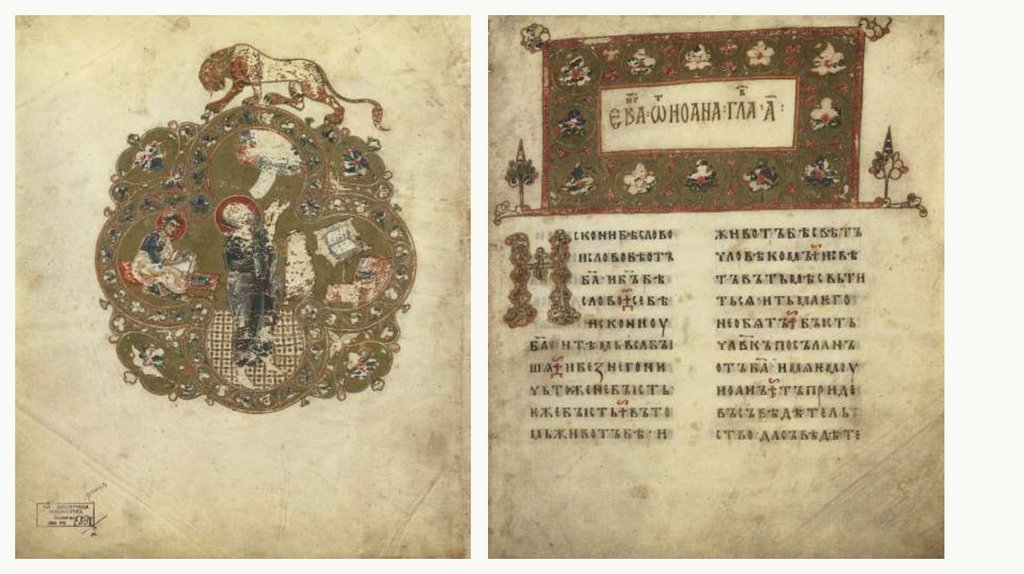 ЕВА҃НГ · ѾТ ИОАНА · ГЛАВ · А҃ :
ИСКОНИ БѢ СЛОВО
И СЛОВО БѢ ОТЪ
Б҃А · И Б҃Ъ БѢ
СЛОВО СЕ БѢ
ИСКОНИ ОУ
Б҃А И ТѢМЬ ВЬСꙖ БЪІ
ШѦ · И БЕЖ НЕГО НИ
ЧЬТОЖЕ НЕ БЪІСТЬ
ѤЖЕ БЪІСТЬ ВЪ ТО
МЬ ЖИВОТЪ БѢ · И
ЖИВОТЪ БѢ СВѢТЪ
ЧЛОВѢКОМЪ И СВѢ
ТЪ ВЪ ТЬМѢ СВЬТИ
ТЬСѦ · И ТЬМА ѤГО
НЕ ОБѦТЪ БЪІСТЬ
ЧЛ҃ВКЪ ПОСЪЛАНЪ
ОТЪ Б҃А · ИМѦ ѤМОУ
ИОАНЪ ТЪ ПРИДЕ
ВЪ СЪВѢДѢТЕЛЬ
СТВО · ДА СЪВѢДѢТЕ